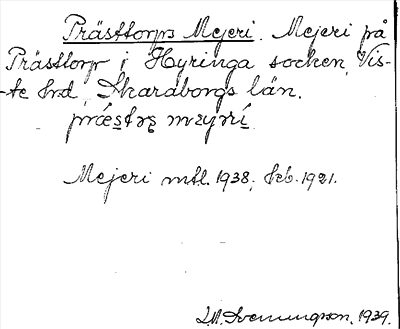 Prästtorps Mejeri. Mejeri på
Prästtorp i Hyringa socken, Vis-
-te hrd, Skaraborgs län.
mejeri
Mejeri mtl. 1938, feb. 1921.
L.M. Svenungsson, 1939.